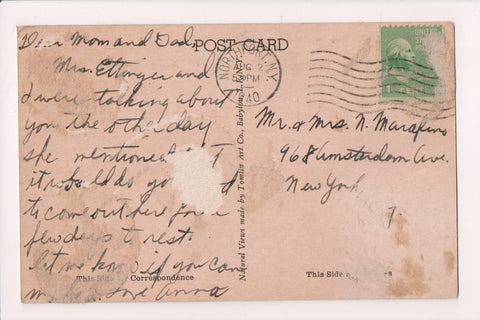 Dear Mom and Dad,
POST CARD
Mrs. Ettinger and
I were talking about
you the other day
she mentioned
it would do
to come out here for a
few days to rest.
let me know if you can
Love Anna
This Side Correspondence
Natural Views made by Tomlin Art Co., Babylon, L.
NORTHPORT N.Y.
AUG 9
PM
40
1
Mr. & Mrs. N. Marafino
968 Amsterdam Ave.
New York
7.
This Side